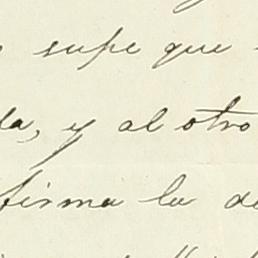 supe que
la, y al otro
firma la de